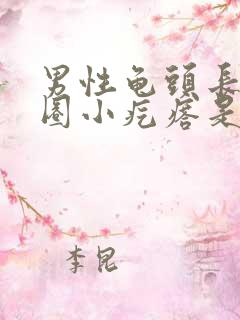 男性龟頭長
圈小疙瘩是
李昆